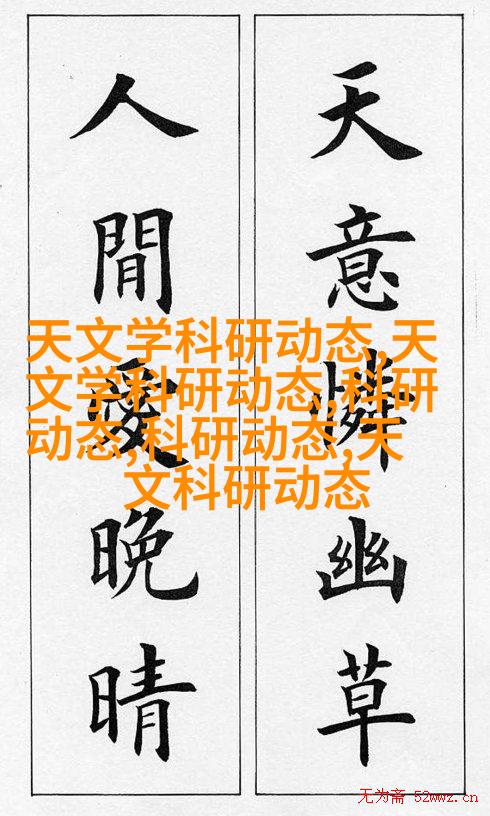 天意憐幽草
人間愛晚晴
天文学科研动态,天
文学科研动态,科研
动态,科研动态,天
文科研动态
无为斋 52wwz.cn